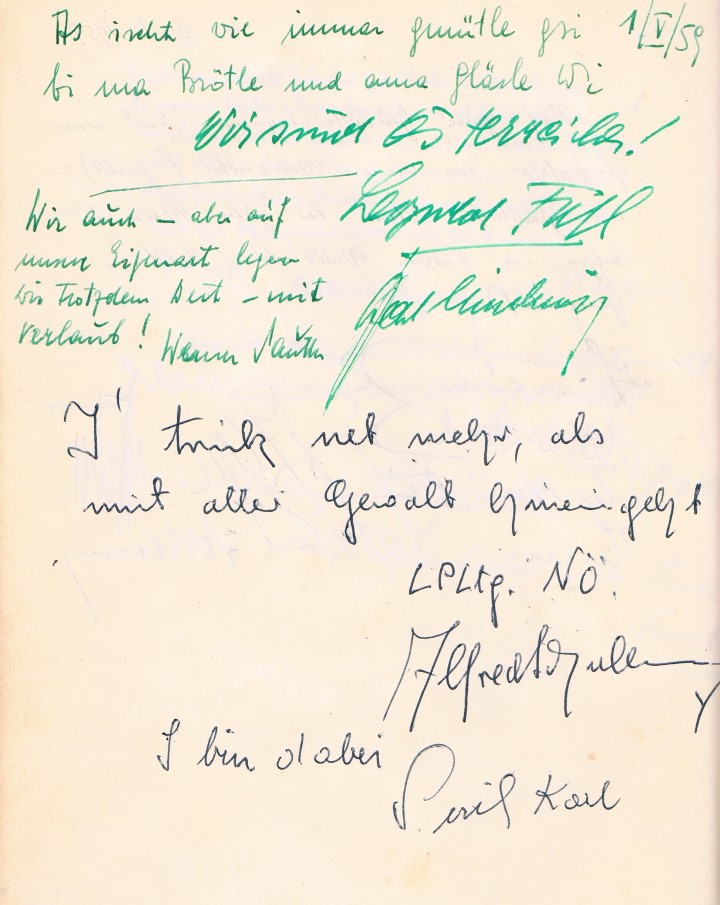 As ischt wie immer gmütle gsi 1/V/59
bi ma Brötle und ama Gläsle Wi
Wir sind Österreicher!
Leopold
Wir auch – aber auf
unsere Eigenart legen
wir trotzdem Wert – mit
Verlaub!
Werner
I' trink net mehr, als
mit aller Gewalt hineingeht
LPLtg. NÖ.
Alfred
I bin dabei
Karl